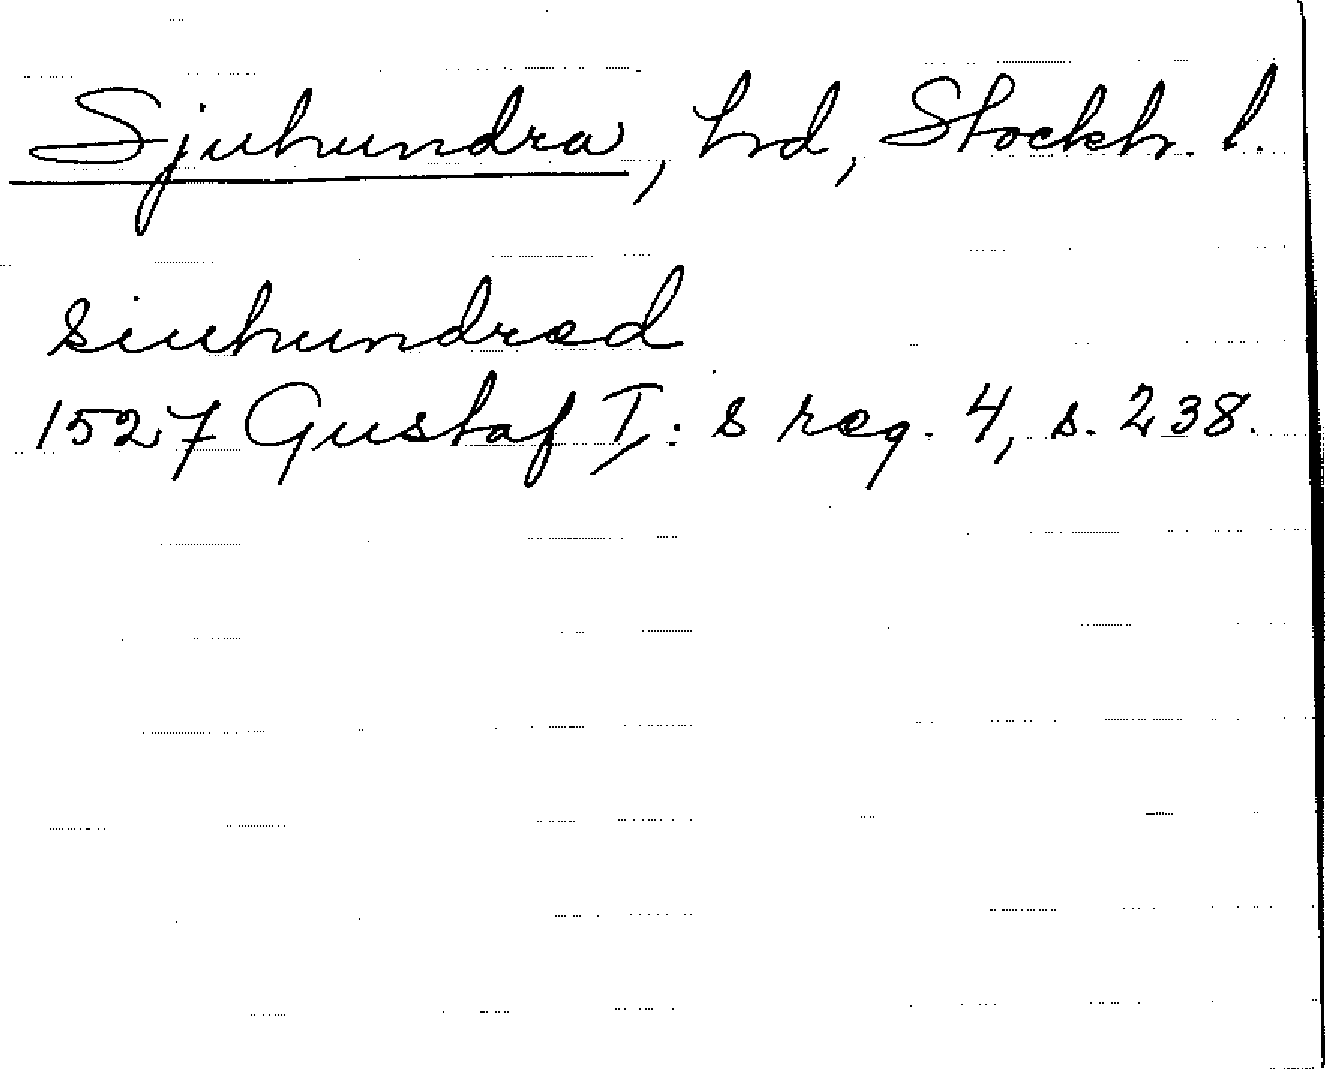 Sjuhundra, hd, Stockh. l.
siuhundred
1527 Gustaf I: s reg. 4, s. 238.